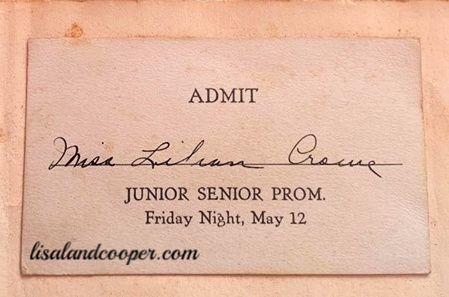 ADMIT
Miss Lilian Crowe
JUNIOR SENIOR PROM.
Friday Night, May 12
lisalandcooper.com